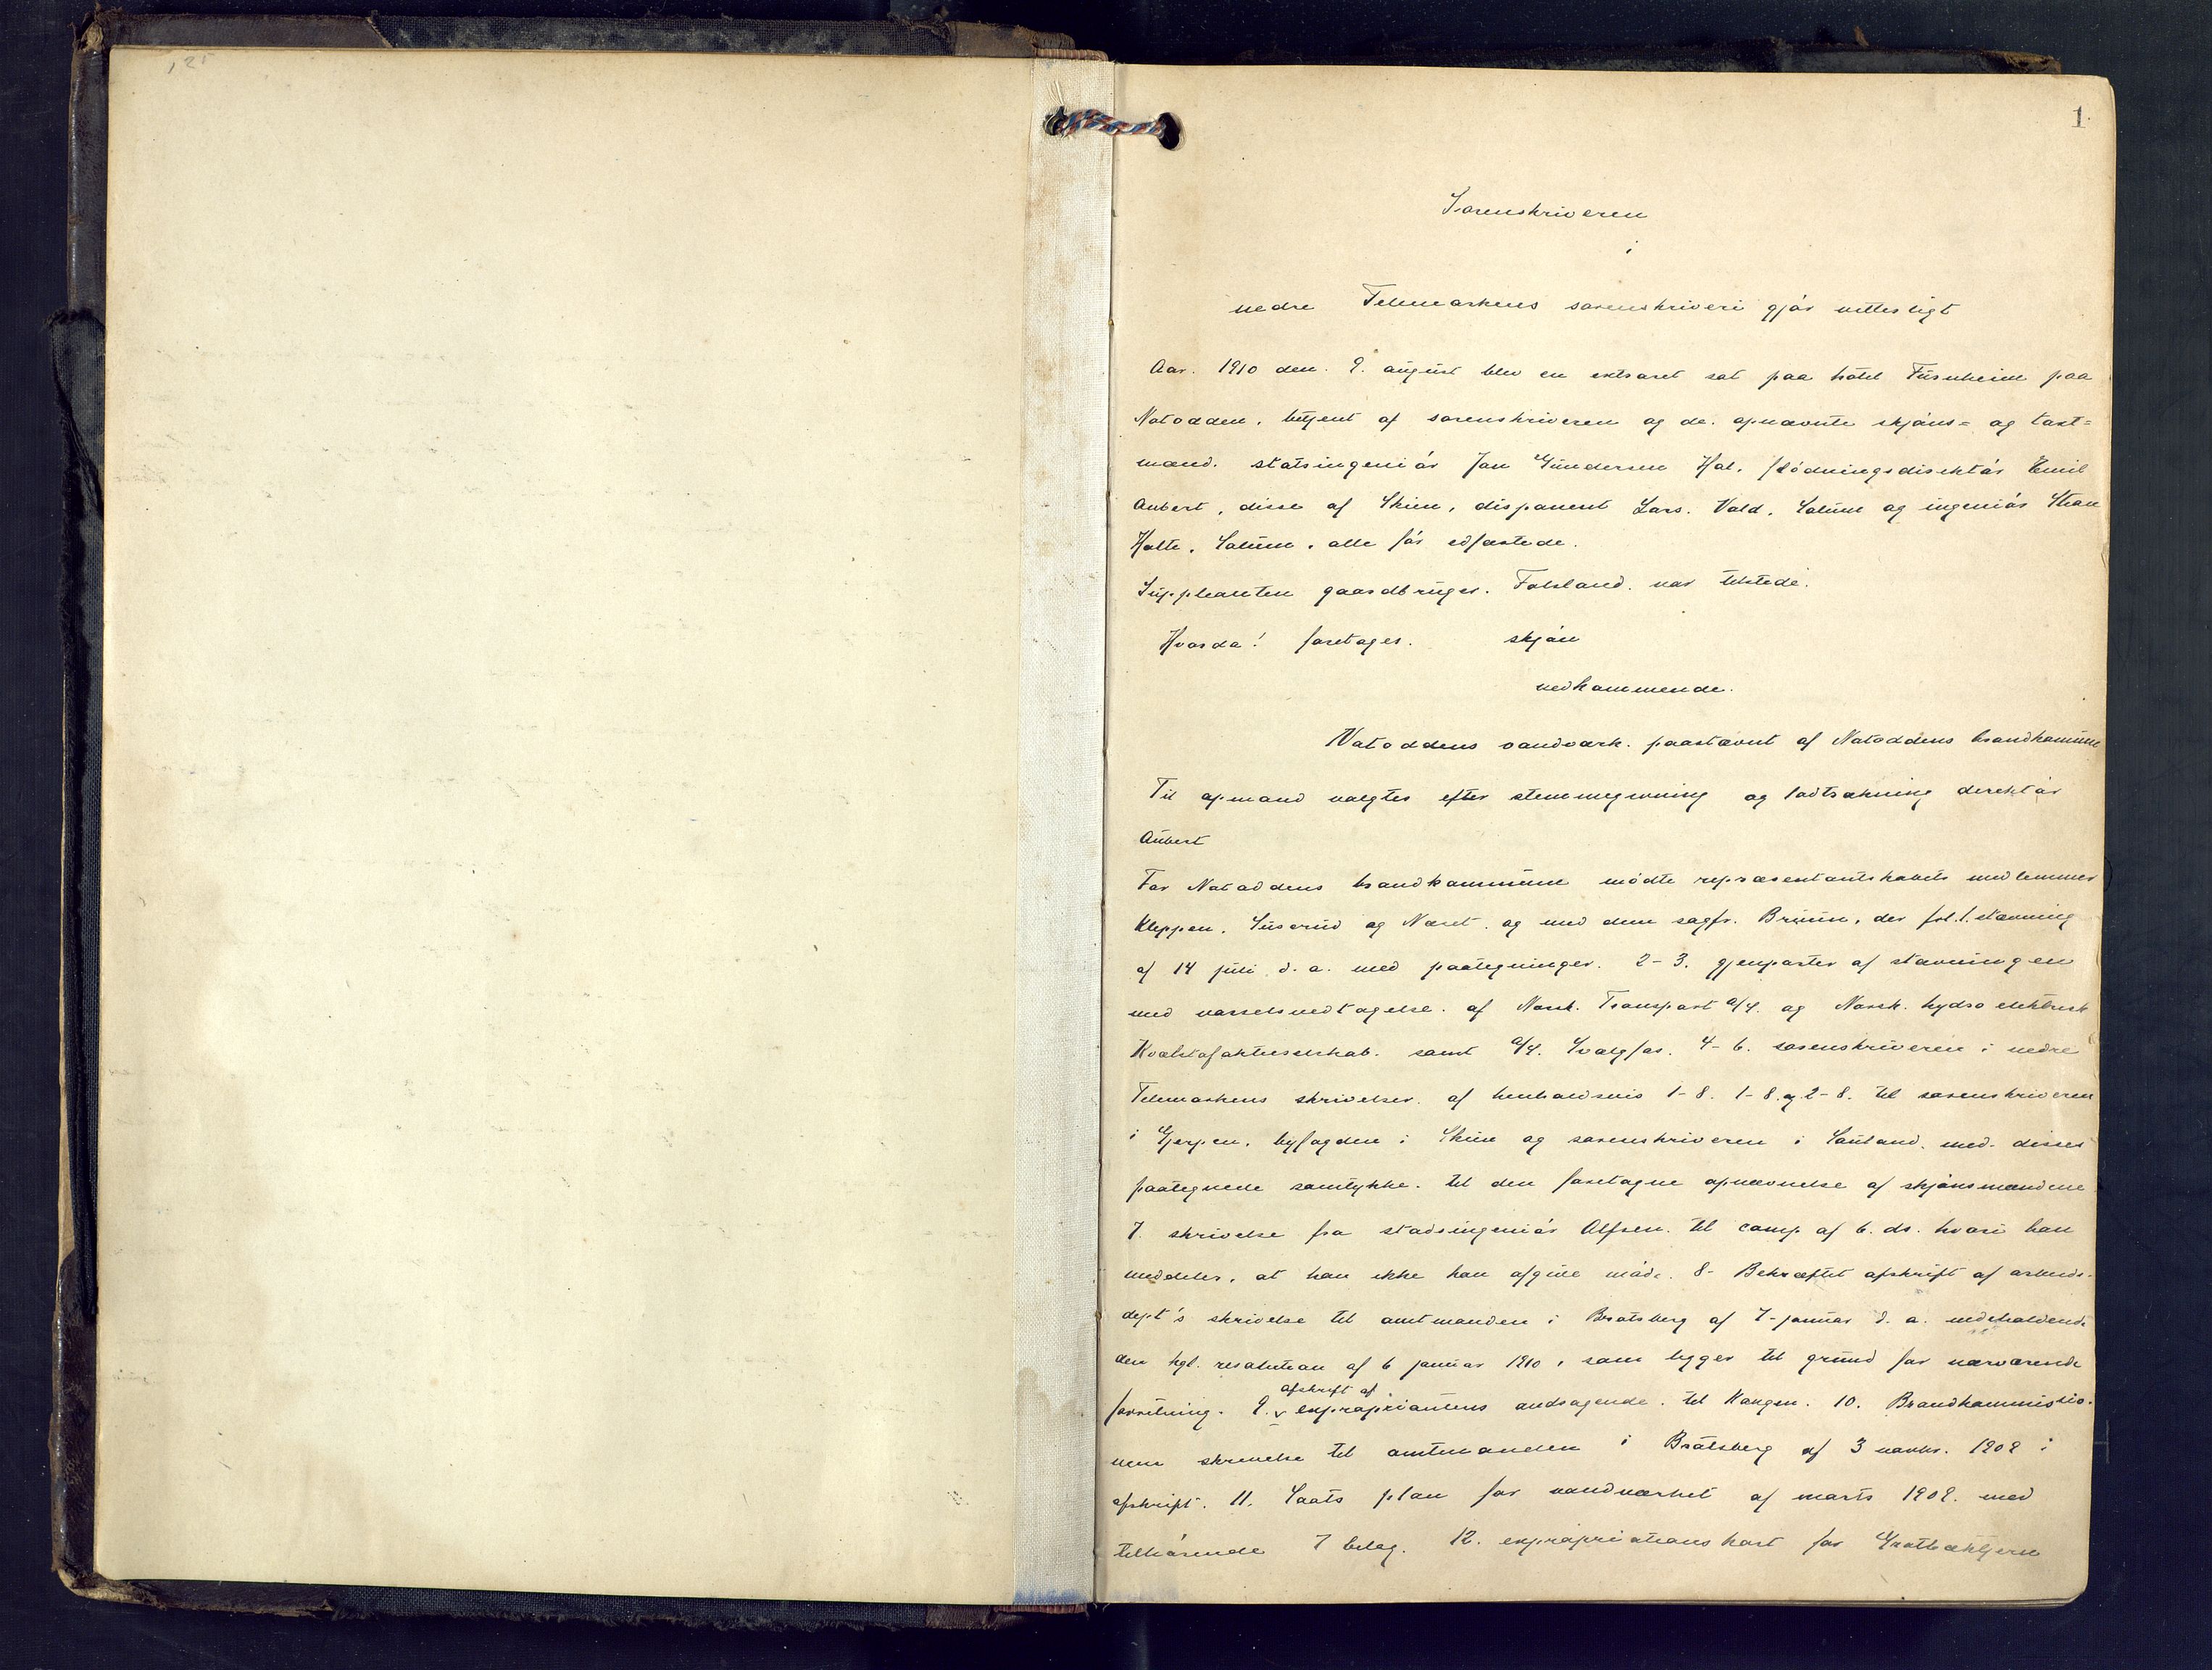 125
1
Sorenskriveren
i
nedre Telemarkens sorenskriveri gjør vitterligt
Aar. 1910 den. 9. august blev en extraret sat paa hotel Furuheim paa
Notodden, betjent af sorenskriveren og de. opnævnte skjøns= og takst=
mænd. statsingeniør Jan Gundersen Hol. flødningsdirektør Emil
Aubert, disse af Skien, disponent Lars. Vald. Solum og ingeniør Than
Holte. Solum. alle før edfæstede.
Suppleanten gaardbruger. Folsland. var tilstede.
Hvorda! foretoges. skjøn
vedkommende.
Notoddens vandværk. paastævnt af Notoddens brandkommune
Til opmand valgtes efter stemmegivning og lodtrækning direktør
Aubert
For Notoddens brandkommune mødte repræsentantskabets medlemmer
Kleppen. Suserud og Næset. og med dem sagfr. Bruun, der frl. 1. stævning
af 14 juli d. a. med paategninger. 2-3. gjenparter af stævningen
med varselsvedtagelse. af Norsk. Transport a/s. og Norsk. hydro elektrisk
Kvælstofaktieselskab. samt a/s. Svælgfos. 4-6. sorenskriveren i nedre
Telemarkens skrivelser. af henholdsvis 1-8. 1-8. og 2-8. til sorenskriveren
i Gjerpen, byfogden i Skien og sorenskriveren i Sauland. med. disses
paategnede samtykke. til den foretagne opnævnelse af skjønsmændene
7. skrivelse fra stadsingeniør Alfsen. til comp. af 6. ds. hvori han
meddeler, at han ikke kan afgive møde. 8- Bekræftet afskrift af arbeids-
dept's skrivelse til amtmanden i Bratsberg af 7-januar d. a. indeholdende
den kgl. resolution af 6 januar 1910, som ligger til grund for nærværende
forretning. 9. v afskrift af expropriantens andragende. til Kongen. 10. Brandkommissio-
nens skrivelse til amtmanden i Bratsberg af 3 novbr. 1909 i
afskrift. 11. Saats plan for vandværket af marts 1909. med
tilhørende 7 bilag. 12. expropriationskart for Grotbæktjern